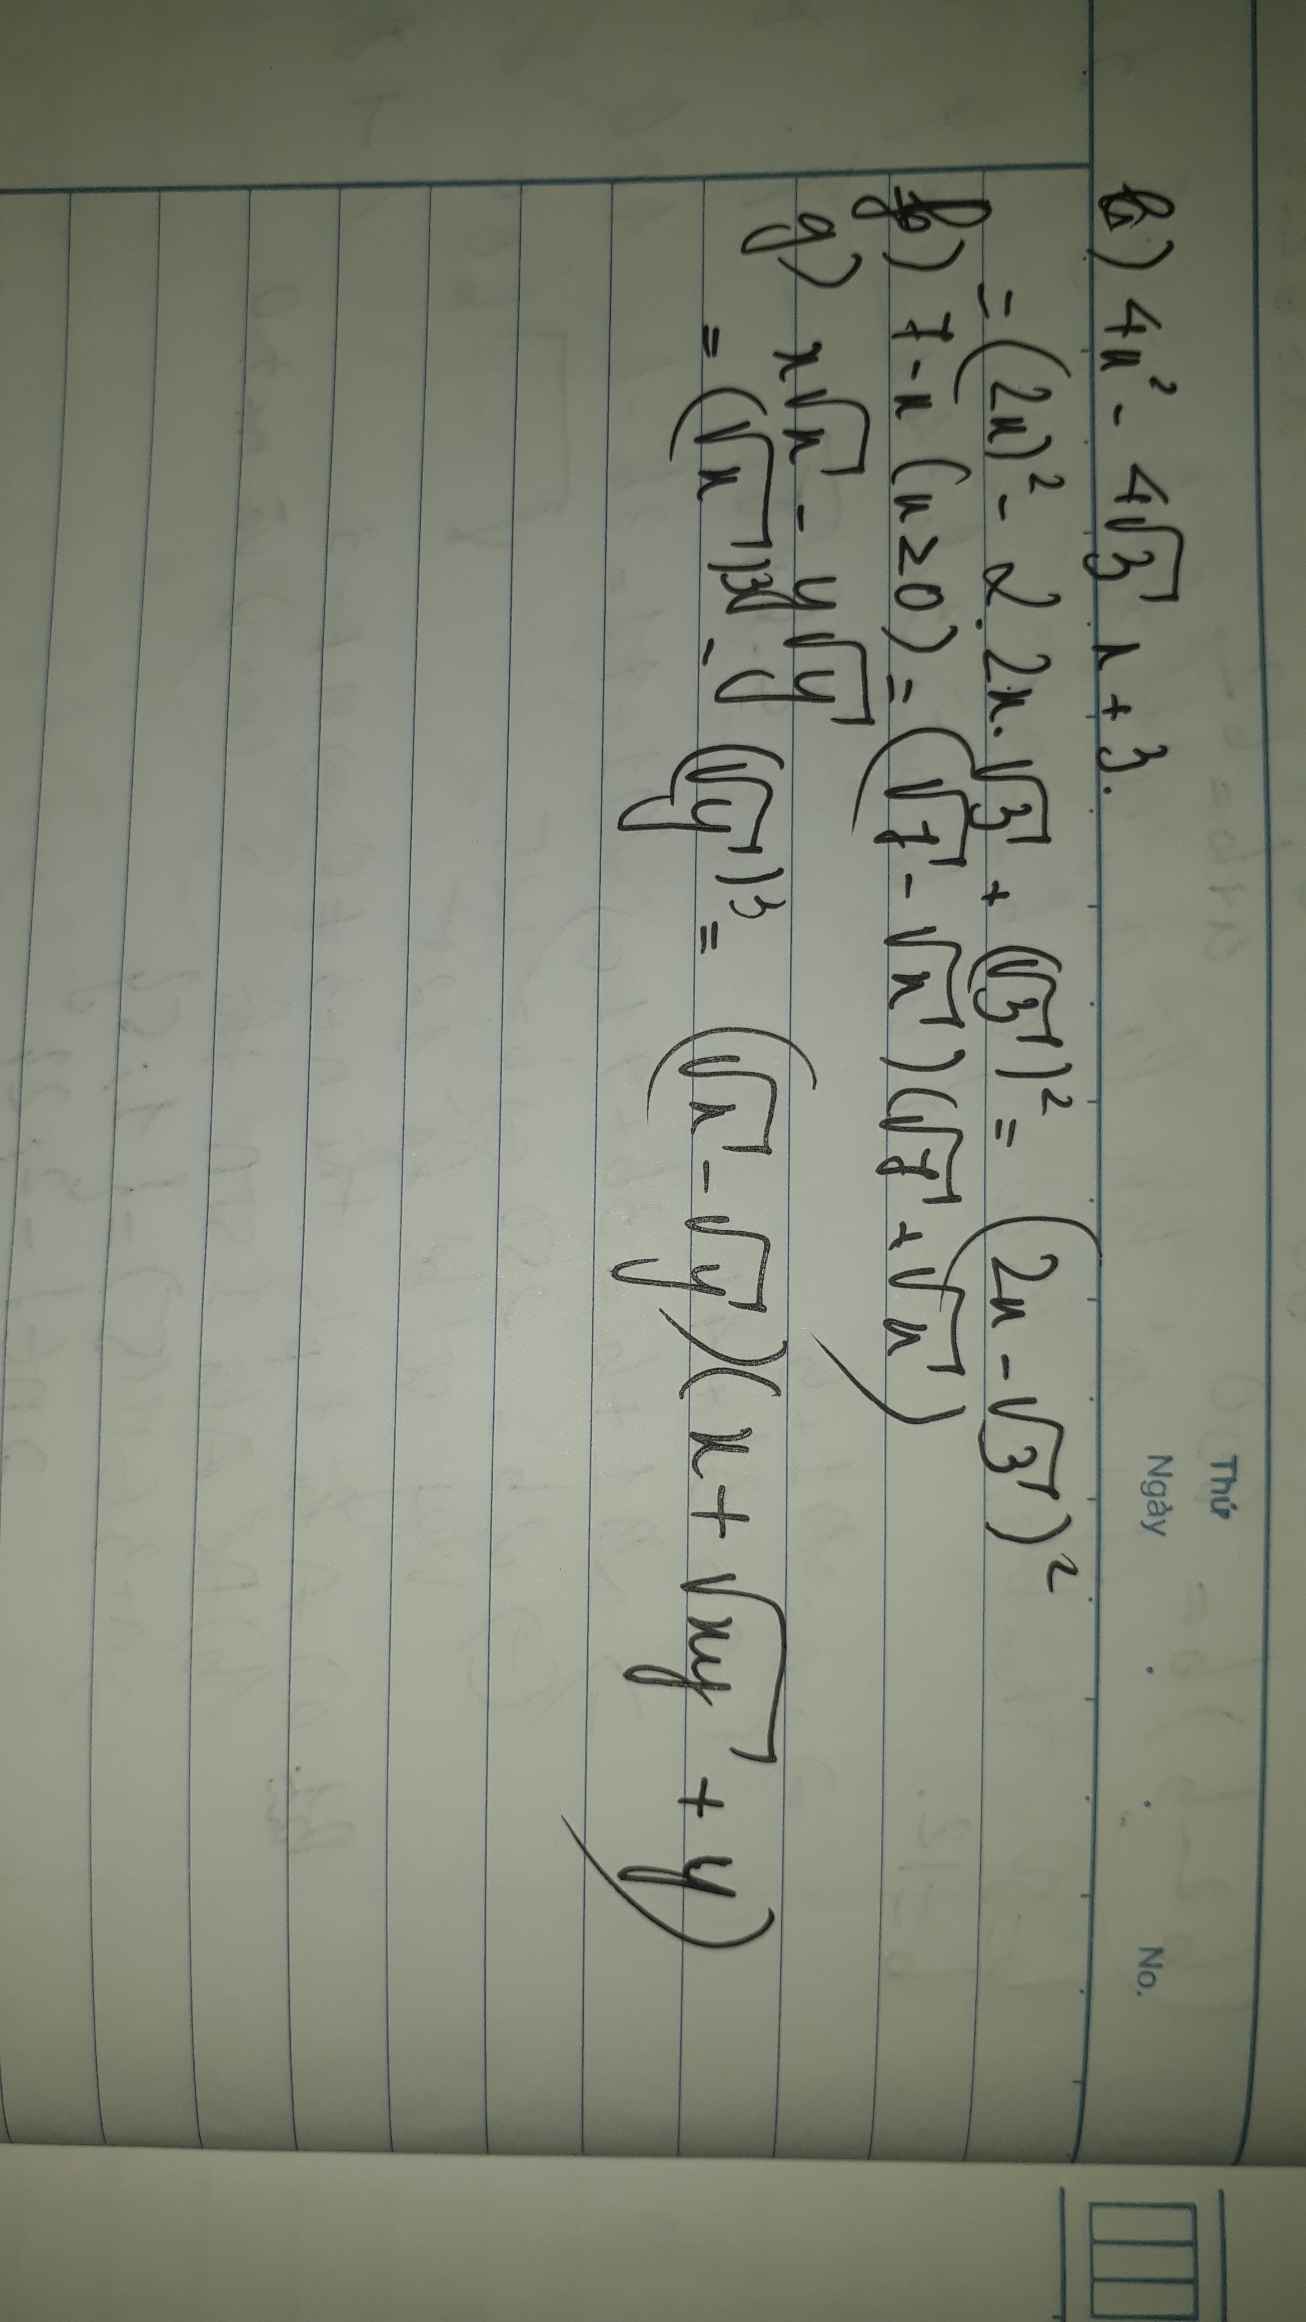 Thứ
Ngày . . No.
h) 4x² - 4√3 x + 3.
= (2x)² - 2. 2x. √3 + (√3)² = (2x - √3)²
f) 7 - x (x ≥ 0) = (√7 - √x)(√7 + √x)
g) x√x - y√y
= (√x)³ - (√y)³ = (√x - √y)(x + √xy + y)